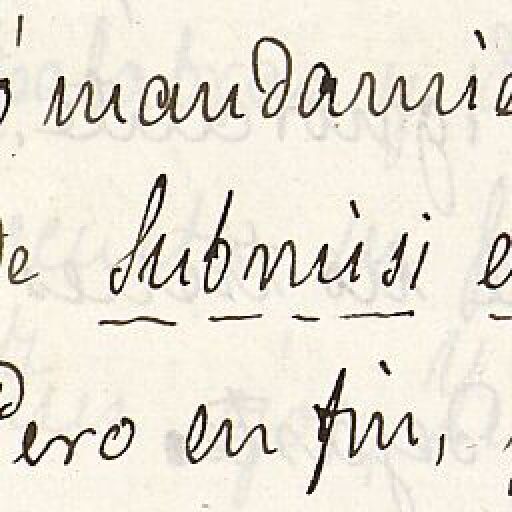 ó mandarnic
de Submisi e
Pero en fin,